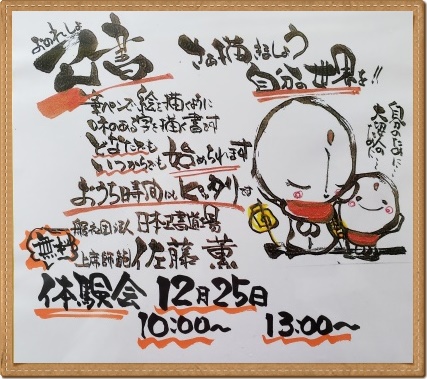 おのれしょ
己書
さあ描きましょう
自分の世界を!!
筆ペンで絵を描くように
味のある字を描く書です
どなたでも
いつからでも始められます
おうち時間にピッタリです
自分のために…
一般社団法人 日本己書道場
無料
上席師範 佐藤 薫
体験会 12月25日
10:00〜 13:00〜